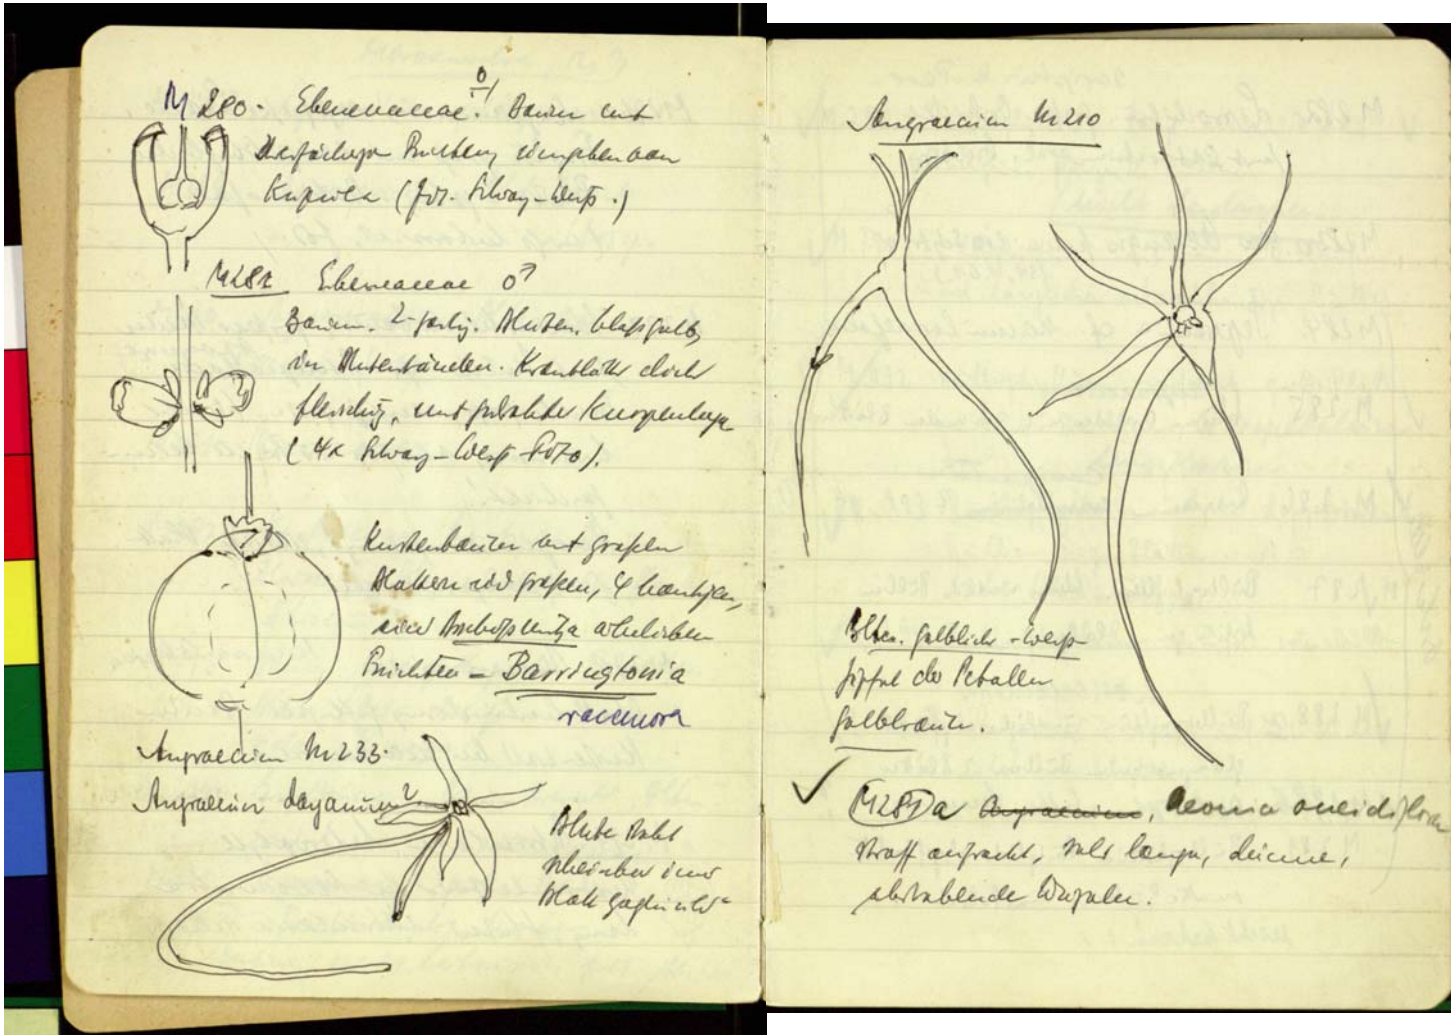 M 280. Ebenaceae! Baum mit
Früchten, umgeben von
Kupula (Foto. Schwarz-Weiß.)
M281 Ebenaceae ♂
Baum. 2-zeilig. Blüten blaßgelb,
in Blütenständen. Kronblätter dick
fleischig, mit gedrehter Knospenlage
(4x Schwarz-Weiß-Foto).
Küstenbäume mit großen
Blättern und großen, 4 kantigen,
ähnlichen
Früchten = Barringtonia
racemosa
Angraecum M233.
Angraecum dayanum?
Blüte steht
scheinbar dem
Blatt gegenüber
Angraecum M210
Blten. gelblich-weiß
Zipfel der Petalen
gelbbraun.
M285a Angraecum, Aeonia oncidiflora
straff aufrecht, sehr lange, dünne,
abstehende Wurzeln.